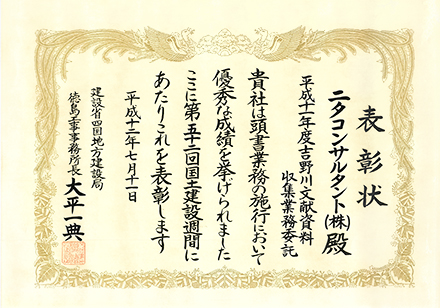 表彰状
ニタコンサルタント(株)殿
平成十一年度吉野川文献資料
収集業務委託
貴社は頭書業務の施行において
優秀な成績を挙げられました
ここに第五十二回国土建設週間に
あたりこれを表彰します
平成十二年七月十一日
建設省四国地方建設局
徳島工事事務所長 大平一典